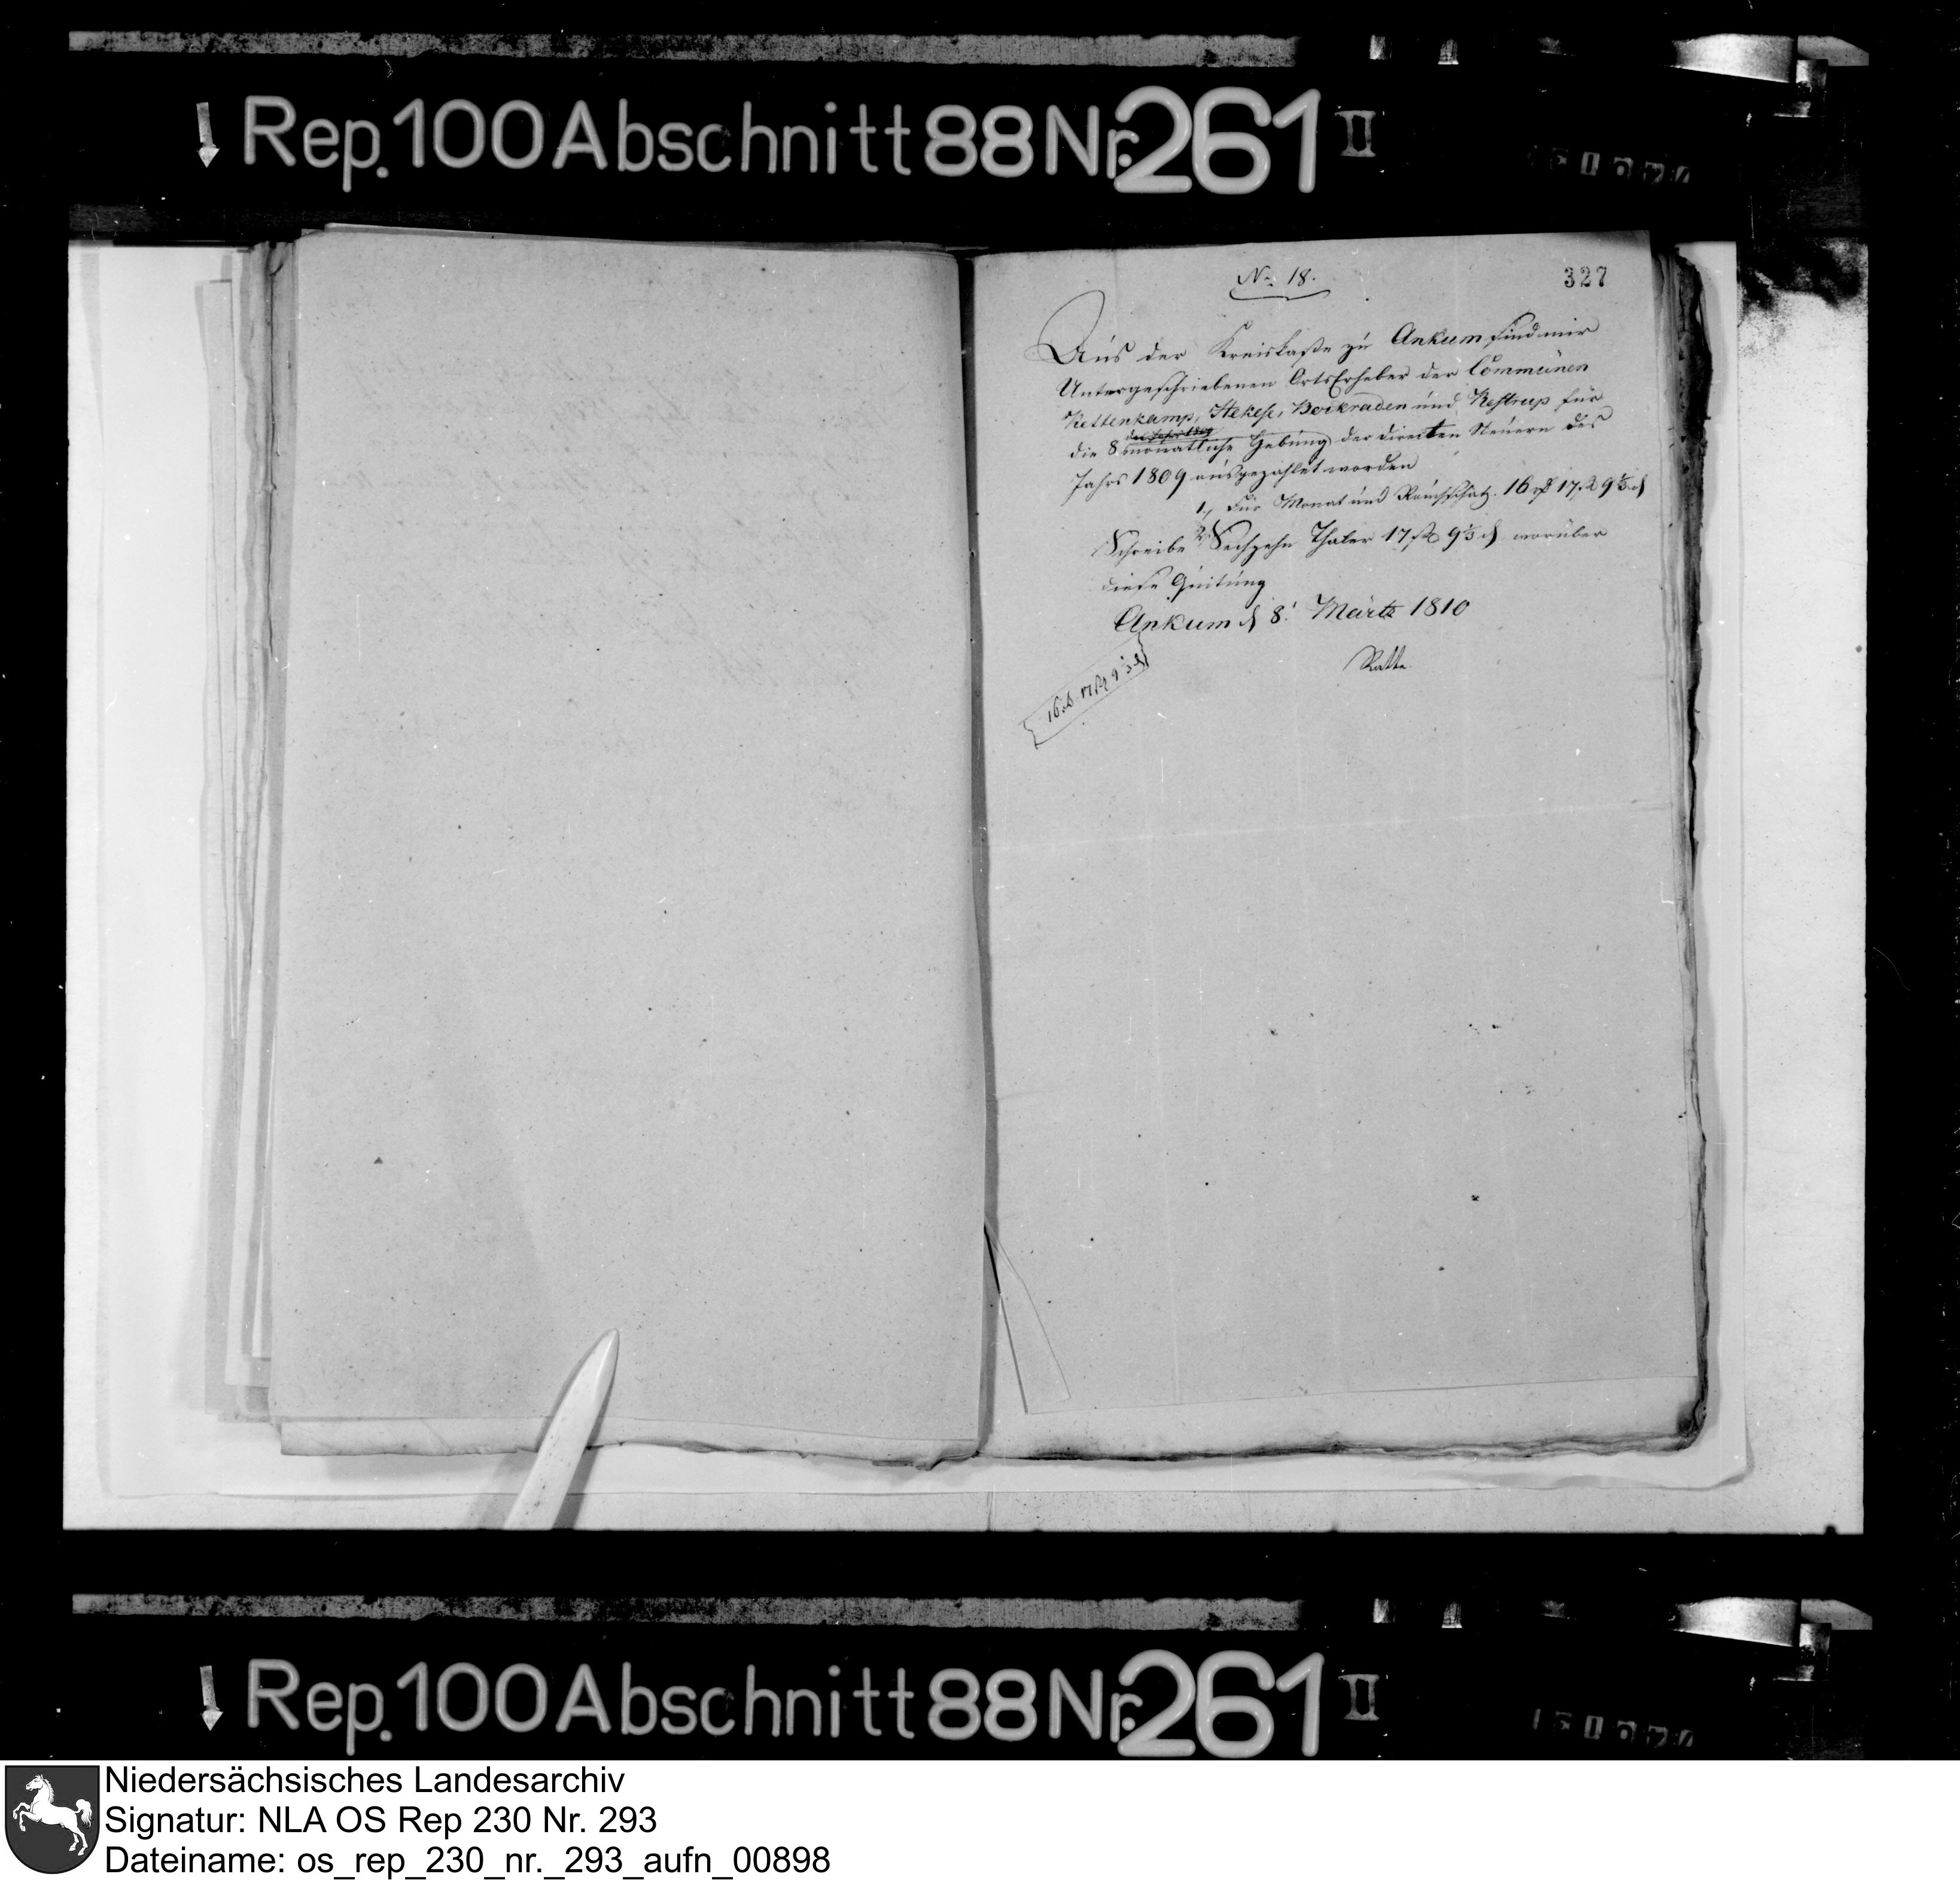 Rep. 100 Abschnitt 88 Nr. 261 II
No. 18.
327
Aus der Kreiskaße zu Ankum sind mir
Untergeschriebenen OrtsErheber der Communen
Kettenkamp, Stekese, Bockraden und Restrup für
die 8 monatliche Hebung der directen Steuern des
Jahrs 1809 ausgezahlet worden
1, Für Monat und Rauchschatz. 16 rℓ 17 ß 9⅓ ₰
Schreibe Sechzehn Thaler 17 ß 9⅓ ₰ worüber
diese Quitung
Ankum d 8. Märtz 1810
Ratte
16 rℓ 17 ß 9⅓ ₰
Rep. 100 Abschnitt 88 Nr. 261 II
Niedersächsisches Landesarchiv
Signatur: NLA OS Rep 230 Nr. 293
Dateiname: os_rep_230_nr._293_aufn_00898